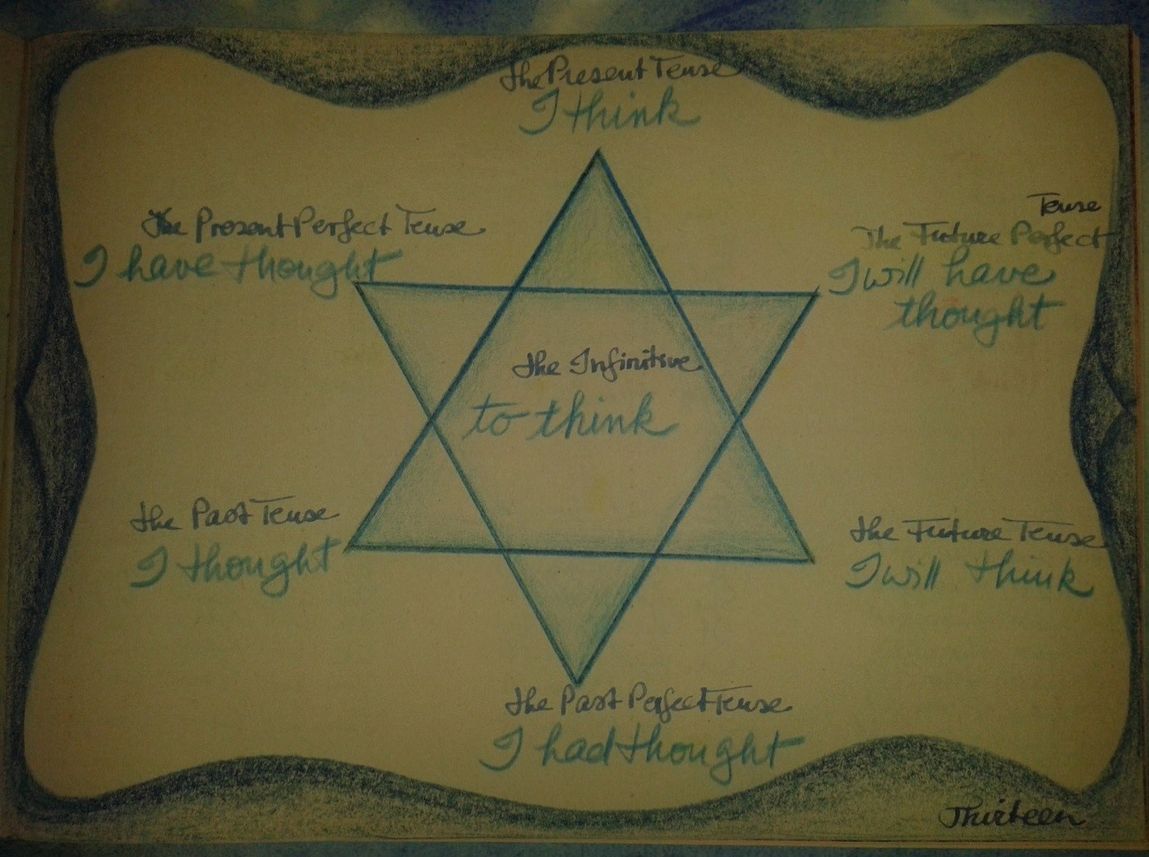 The Present Tense
I think
The Present Perfect Tense
I have thought
Tense
The Future Perfect
I will have
thought
the Infinitive
to think
the Past Tense
I thought
the Future Tense
I will think
the Past Perfect Tense
I had thought
Thirteen